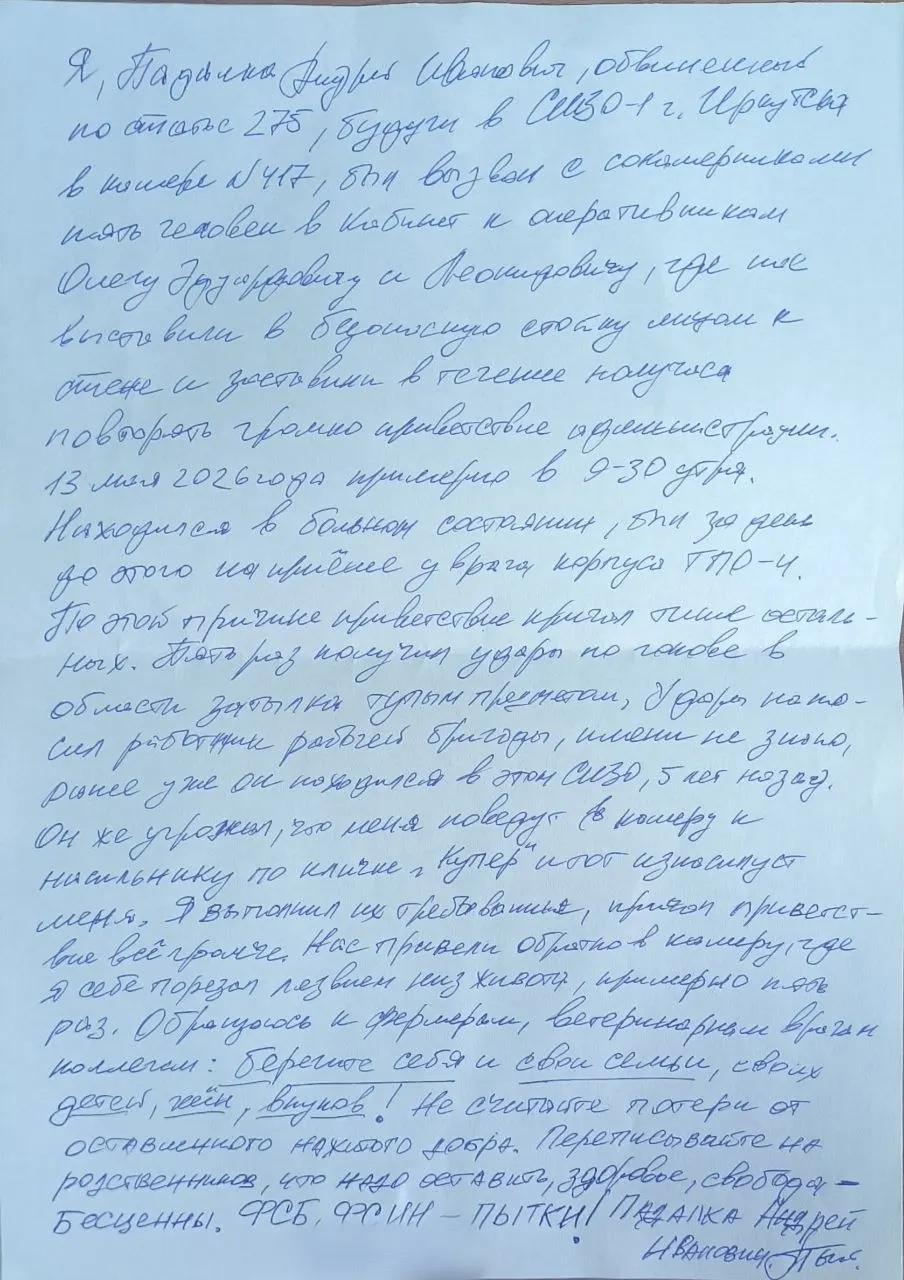 Я, Падалка Андрей Иванович, обвиненный
по статье 275, будучи в СИЗО-1 г. Иркутска
в камере №417, был вызван с сокамерниками
пять человек в кабинет к оперативникам
Олегу Эдуардовичу и Леонидовичу, где нас
выставили в безопасную стойку лицом к
стене и заставили в течение получаса
повторять громко приветствие администрации.
13 мая 2026 года примерно в 9-30 утра.
Находился в больном состоянии, был за день
до этого на приёме у врача корпуса ТПО-4.
По этой причине приветствие кричал тише осталь-
ных. Пять раз получил удары по голове в
области затылка тупым предметом, удары нано-
сил работник рабочей бригады, имени не знаю,
ранее уже он находился в этом СИЗО, 5 лет назад.
Он же угрожал, что меня поведут в камеру к
насильнику по кличке „Купер" и тот изнасилует
меня. Я выполнил их требования, кричал приветст-
вие всё громче. Нас привели обратно в камеру, где
я себе порезал лезвием низ живота, примерно пять
раз. Обращаюсь к фермерам, ветеринарным врачам
коллегам: берегите себя и свои семьи, своих
детей, жён, внуков! Не считайте потери от
оставленного нажитого добра. Переписывайте на
родственников, что надо оставить, здоровье, свобода –
Бесценны. ФСБ, ФСИН – ПЫТКИ! Падалка Андрей
Иванович.